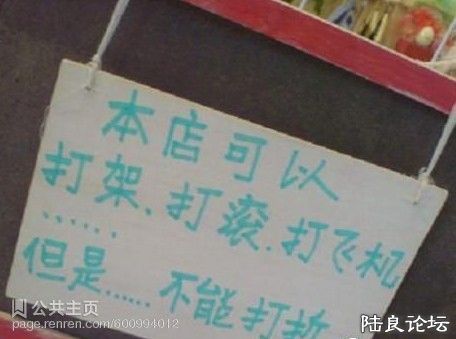 本店可以
打架、打滚、打飞机
......
但是......不能打折
公共主页
page.renren.com/600994012
陆良论坛